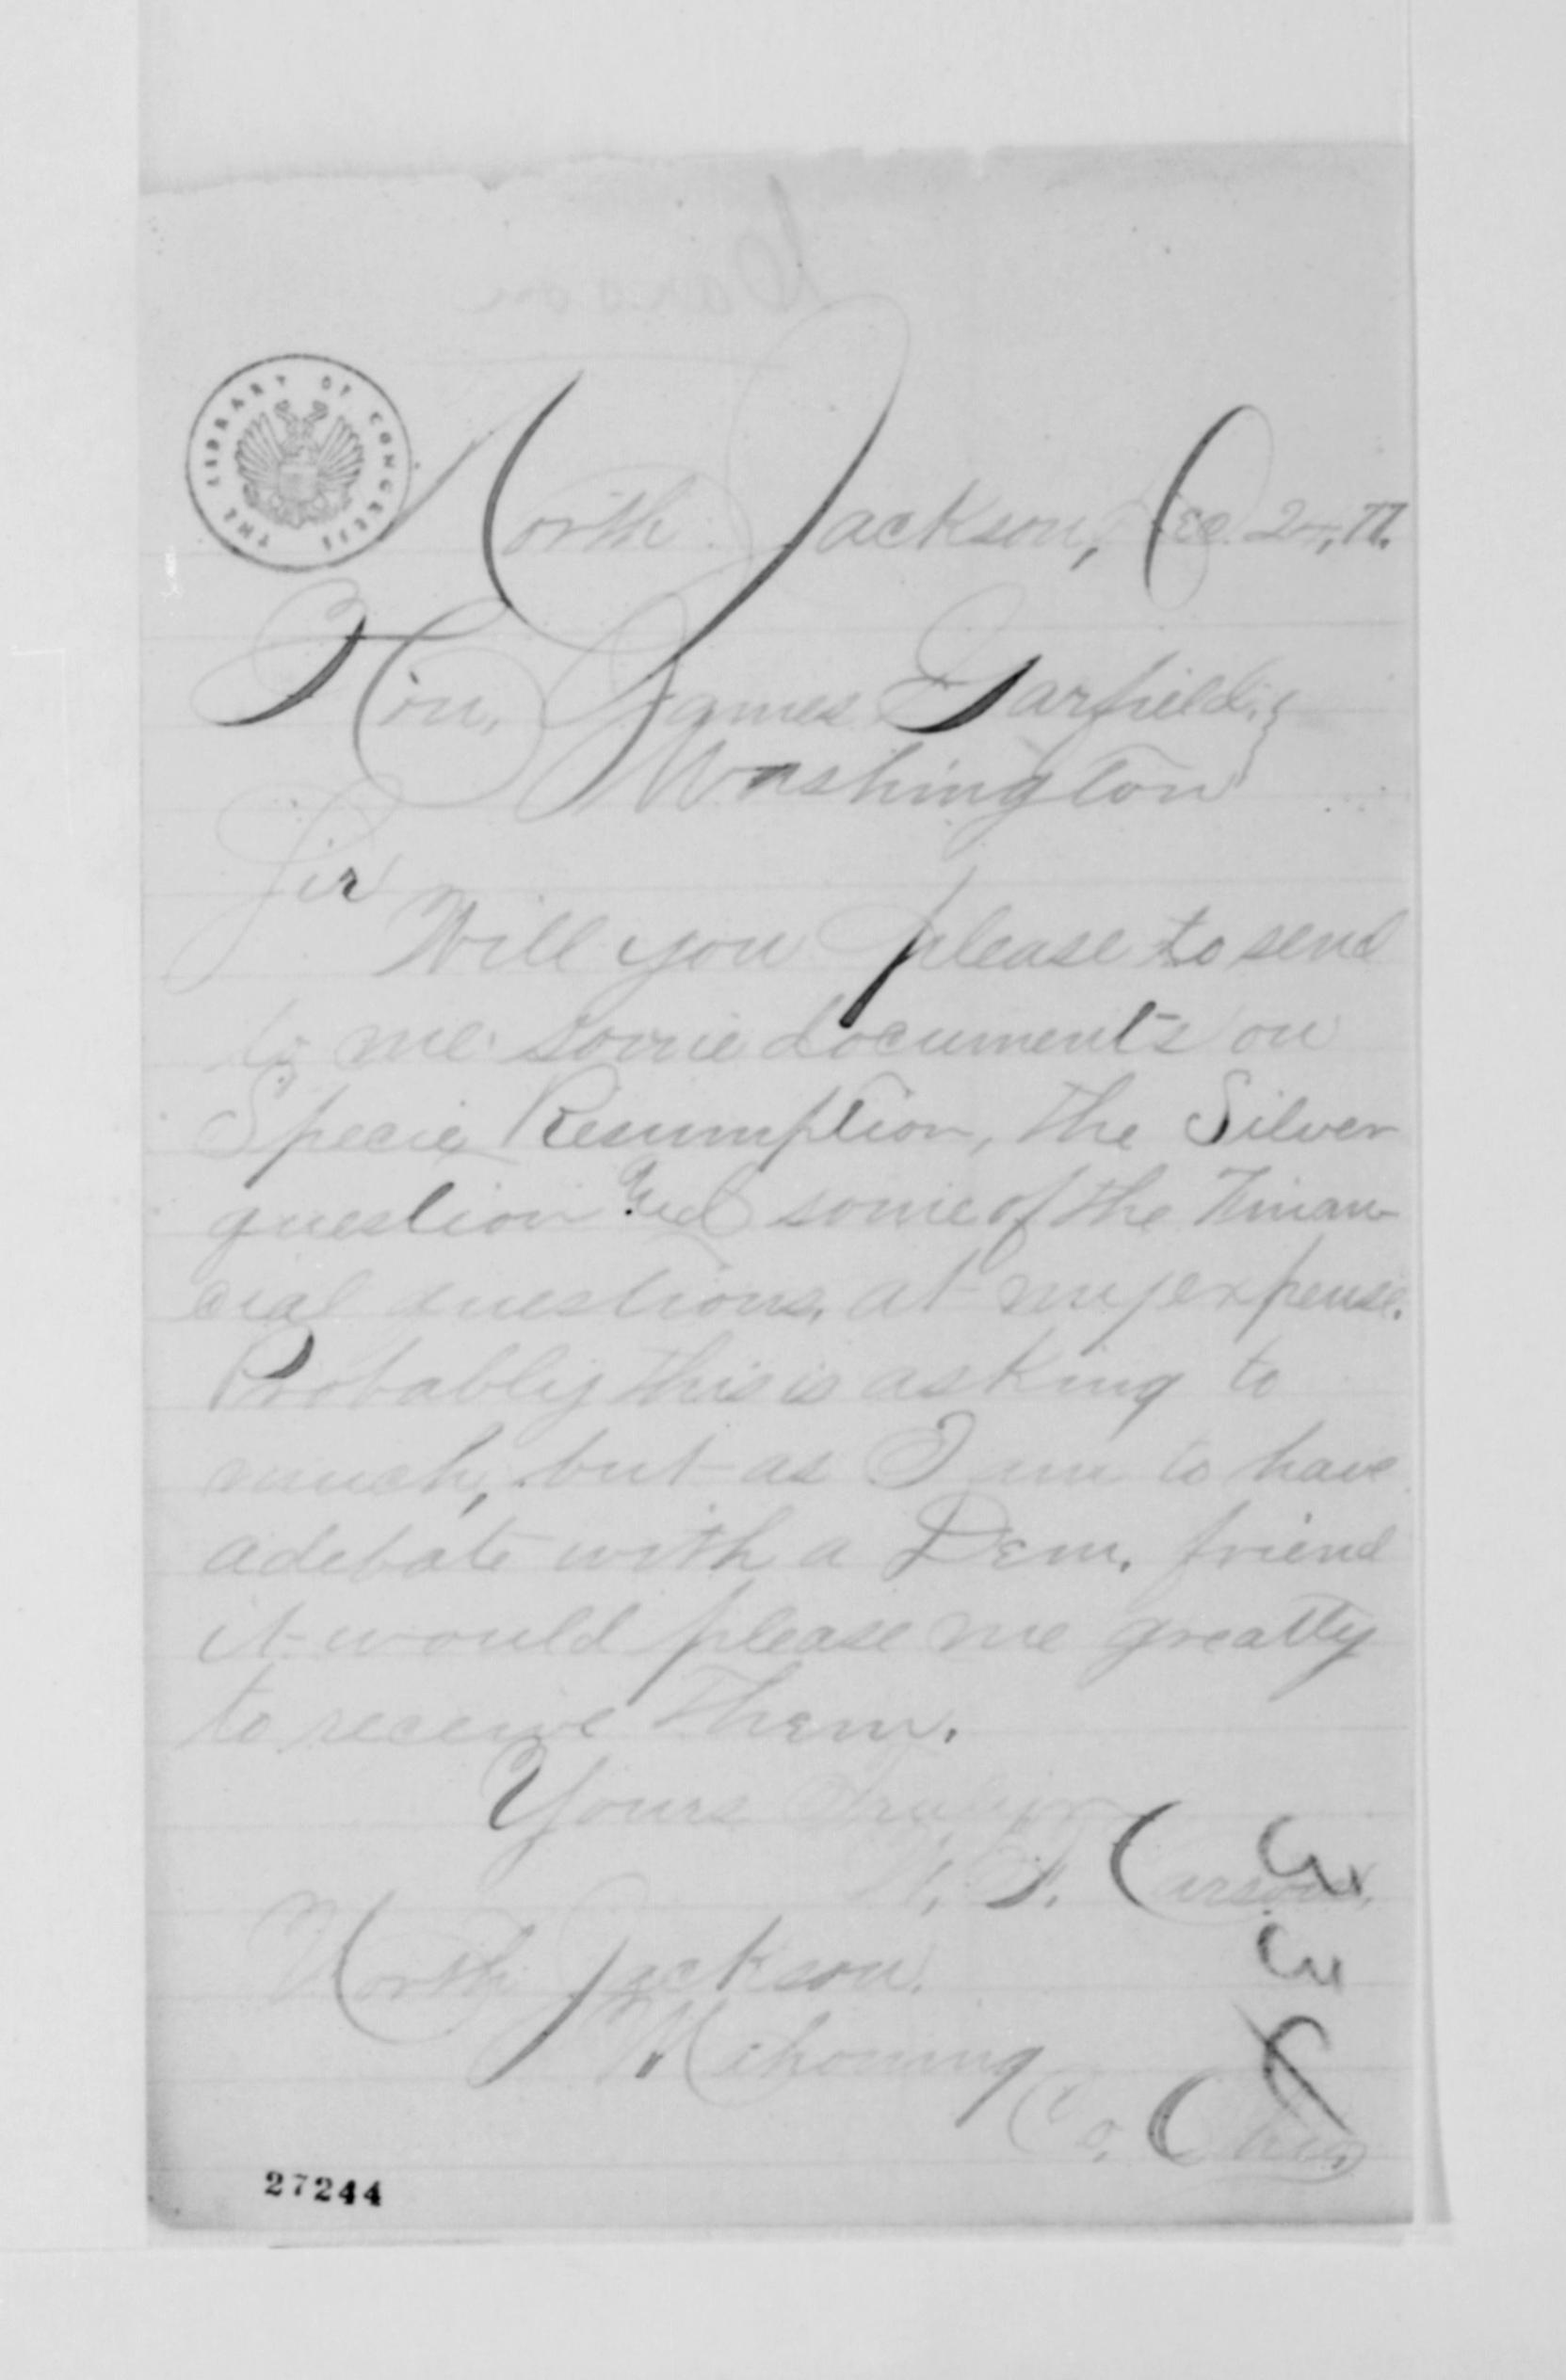 THE LIBRARY OF CONGRESS
North Jackson, Dec. 20, 77.
Hon. James Garfield,
Washington
Sir
Will you please to send
to me some documents on
Specie Resumption, the Silver
question and some of the Finan
cial questions, at my expense.
Probably this is asking to
much, but as I am to have
a debate with a Dem. friend
it would please me greatly
to receive them.
Yours
Carson,
North Jackson.
Mahoning
Co. Ohio
27244